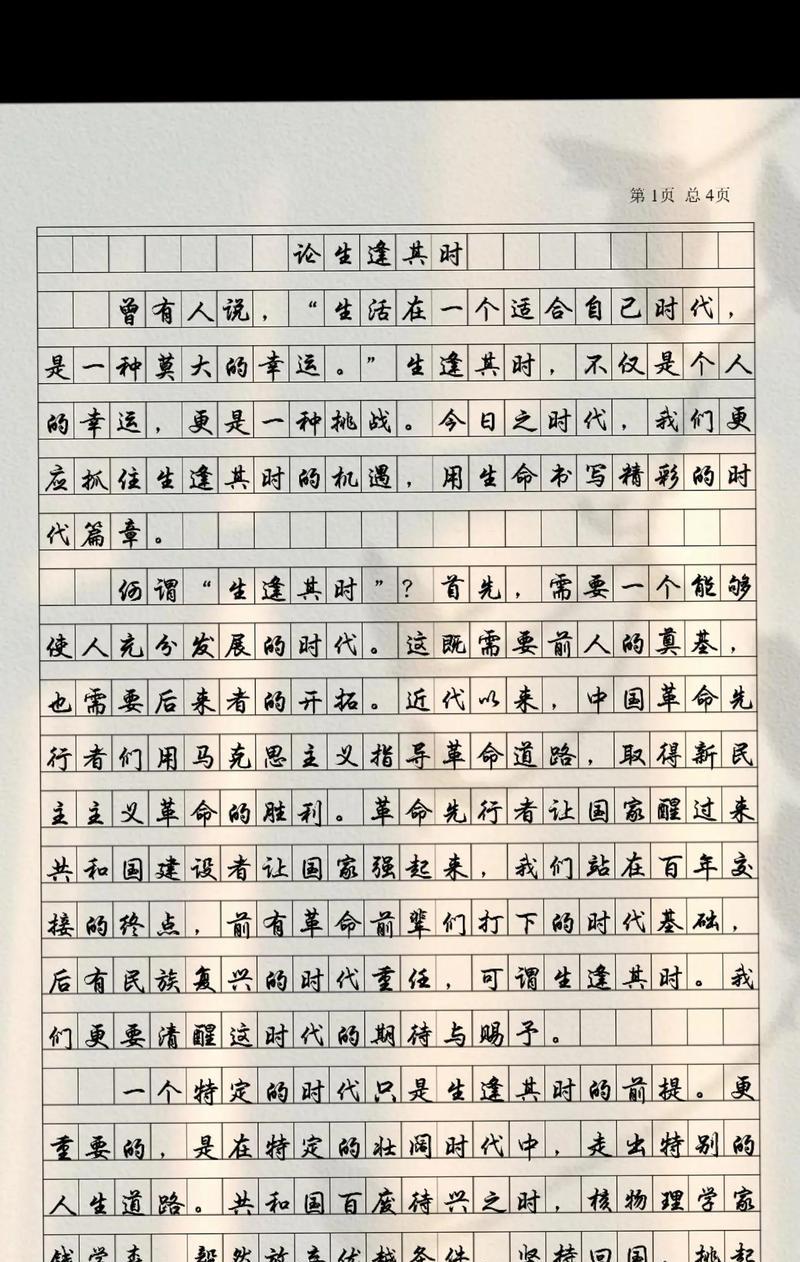 第1页 总4页
论生逢其时
曾有人说，“生活在一个适合自己时代，
是一种莫大的幸运。”生逢其时，不仅是个人
的幸运，更是一种挑战。今日之时代，我们更
应抓住生逢其时的机遇，用生命书写精彩的时
代篇章。
何谓“生逢其时”？首先，需要一个能够
使人充分发展的时代。这既需要前人的奠基，
也需要后来者的开拓。近代以来，中国革命先
行者们用马克思主义指导革命道路，取得新民
主主义革命的胜利。革命先行者让国家醒过来
共和国建设者让国家强起来，我们站在百年交
接的终点，前有革命前辈们打下的时代基础，
后有民族复兴的时代重任，可谓生逢其时。我
们更要清醒这时代的期待与赐予。
一个特定的时代只是生逢其时的前提。更
重要的，是在特定的壮阔时代中，走出特别的
人生道路。共和国百废待兴之时，核物理学家
钱学森，毅然放弃优越条件，坚持回国，挑起